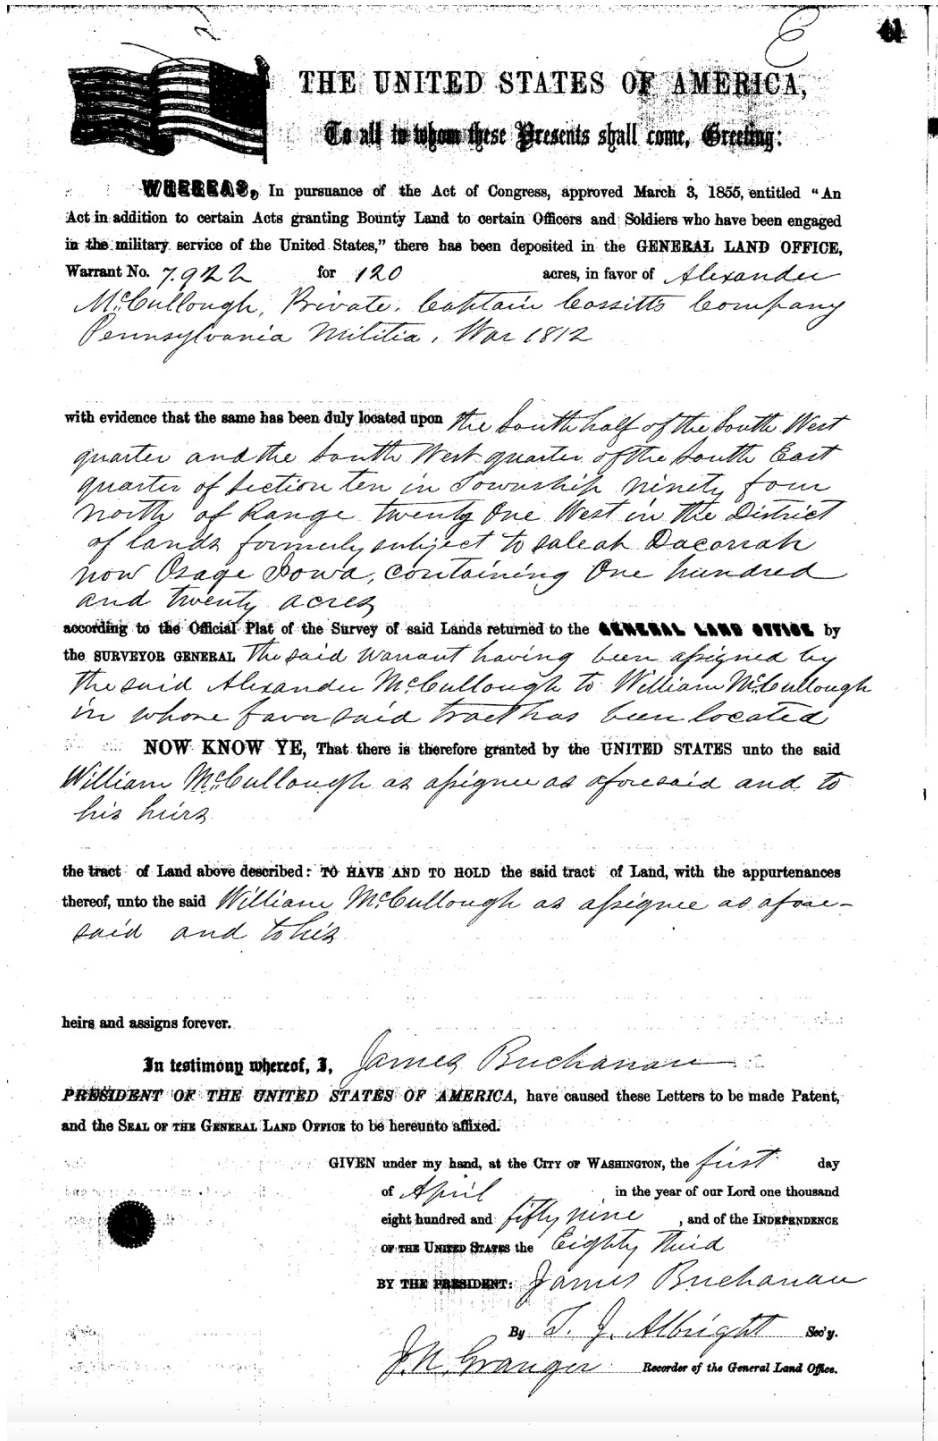 E
THE UNITED STATES OF AMERICA,
To all to whom these Presents shall come, Greeting:
WHEREAS, In pursuance of the Act of Congress, approved March 3, 1855, entitled "An
Act in addition to certain Acts granting Bounty Land to certain Officers and Soldiers who have been engaged
in the military service of the United States," there has been deposited in the GENERAL LAND OFFICE,
Warrant No. 7.922 for 120 acres, in favor of Alexander
McCullough, Private, Captain Cossitts Company
Pennsylvania Militia, War 1812
with evidence that the same has been duly located upon the South half of the South West
quarter and the South West quarter of the South East
quarter of Section ten in Township ninety four
north of Range twenty One West in the District
of lands formerly subject to sale at Dacorrah
now Osage Iowa, containing One hundred
and twenty acres
according to the Official Plat of the Survey of said Lands returned to the GENERAL LAND OFFICE by
the SURVEYOR GENERAL The said warrant having been assigned by
the said Alexander McCullough to William McCullough
in whose favor said tract has been located
NOW KNOW YE, That there is therefore granted by the UNITED STATES unto the said
William McCullough as assignee as aforesaid and to
his heirs
the tract of Land above described: TO HAVE AND TO HOLD the said tract of Land, with the appurtenances
thereof, unto the said William McCullough as assignee as afore-
said and to his
heirs and assigns forever.
In testimony whereof, I, James Buchanan
PRESIDENT OF THE UNITED STATES OF AMERICA, have caused these Letters to be made Patent,
and the SEAL OF THE GENERAL LAND OFFICE to be hereunto affixed.
GIVEN under my hand, at the CITY OF WASHINGTON, the first day
of April in the year of our Lord one thousand
eight hundred and fifty nine, and of the INDEPENDENCE
OF THE UNITED STATES the Eighty third
BY THE PRESIDENT: James Buchanan
By T. J. Albright Sec'y.
J. N. Granger Recorder of the General Land Office.